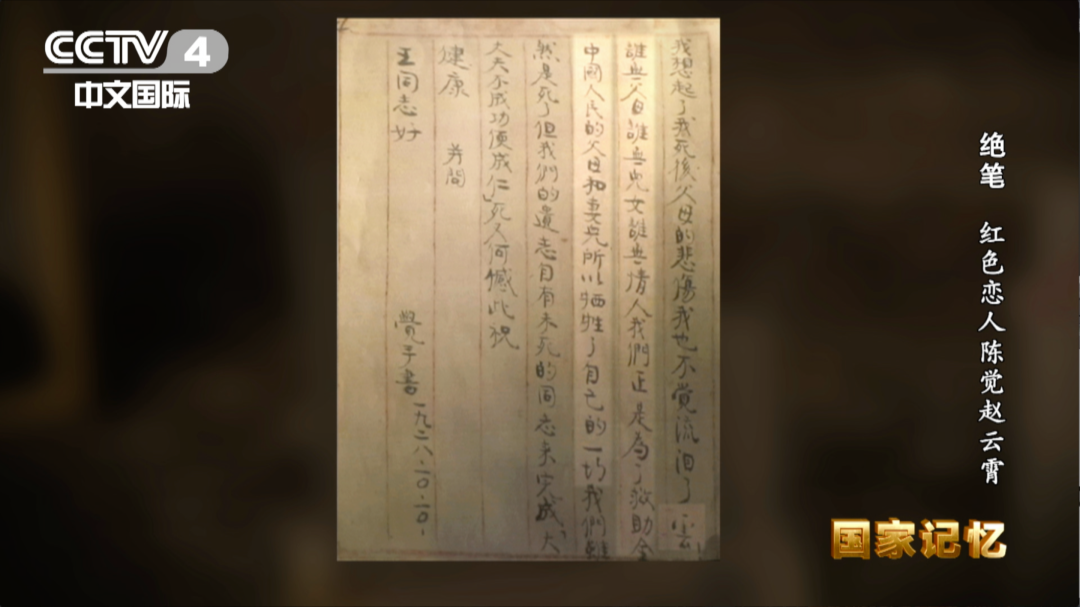 CCTV 4
中文国际
绝笔 红色恋人陈觉赵云霄
我想起了我死後父母的悲傷我也不覺流泪了雲
誰無父母誰無兒女誰無情人我們正是為了救助全
中國人民的父母和妻兒所以牺牲了自己的一切我們雖
然是死了但我們的遺志自有未死的同志來完成"大
丈夫不成功便成仁"死又何憾此祝
健康 并問
王同志好
覺手書一九二八·一〇·一〇·
国家记忆